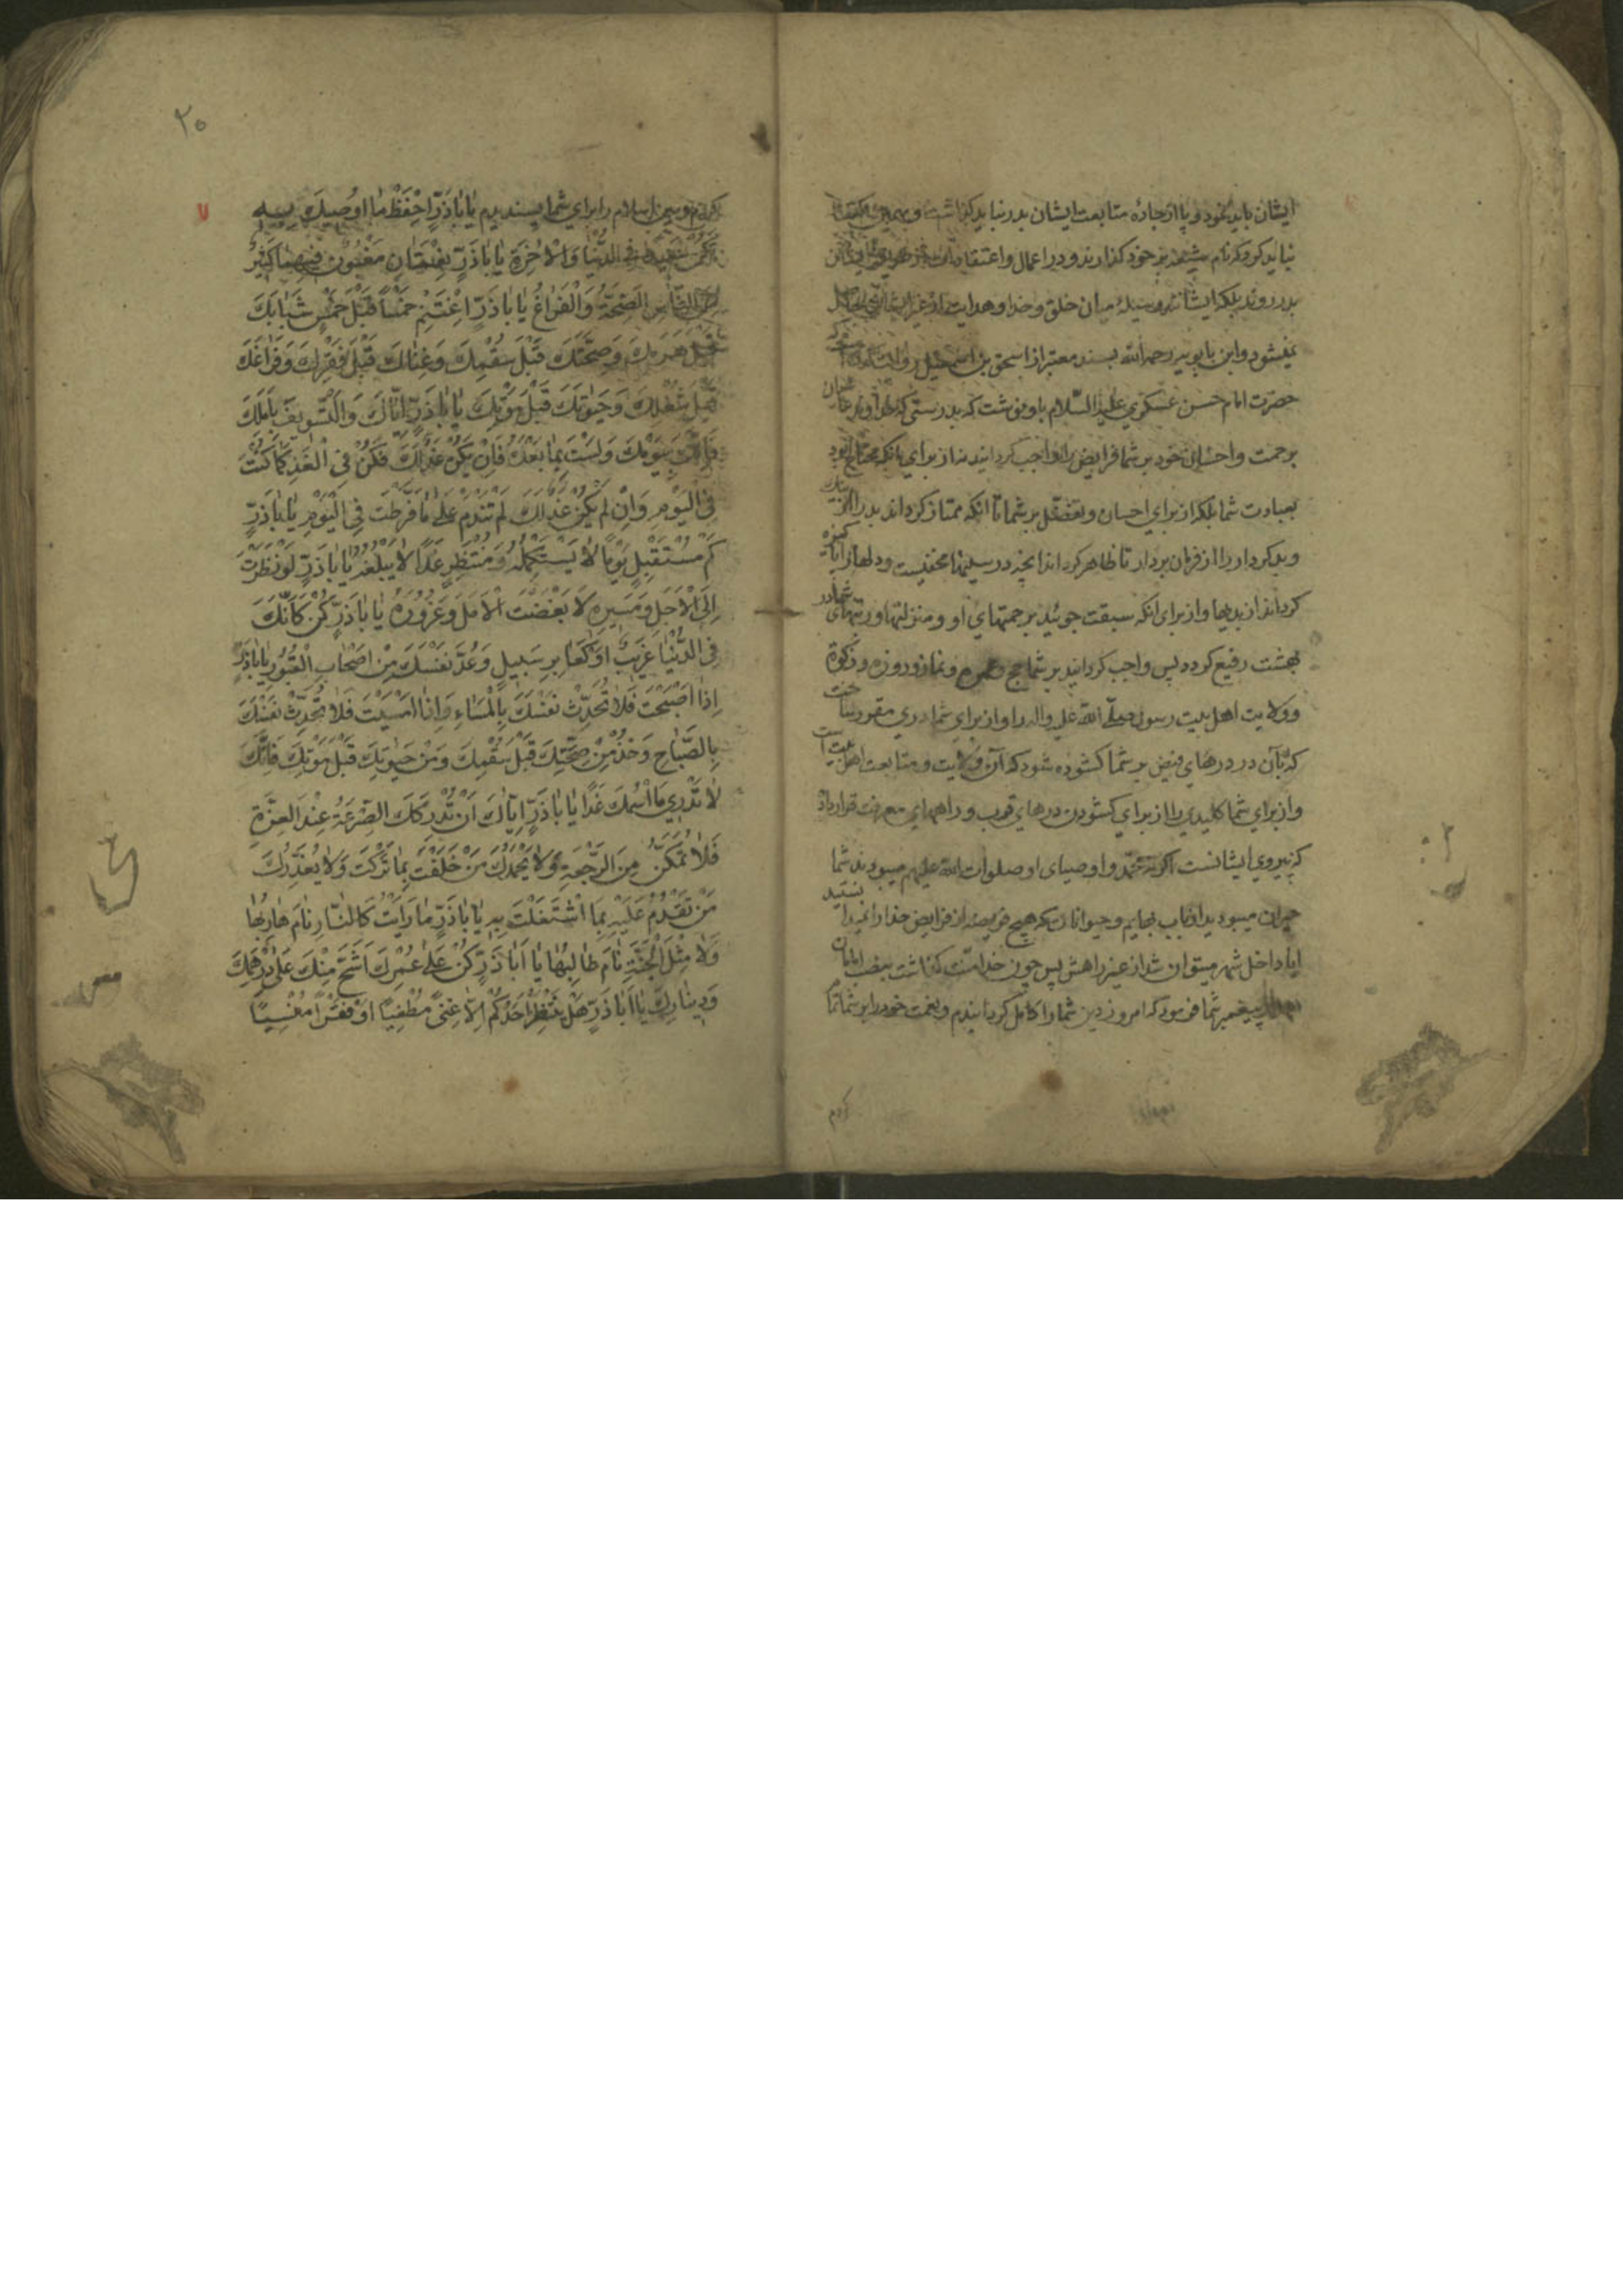 ایشان باید نمود و پا از جادهٔ متابعت ایشان بدر نباید گذاشت و بهمین اکتفا
نباید کرد که نام شیعه بر خود گذارند و در اعمال و اعتقادات از طریق ایشان
بدر روند بلکه ایشانند وسیلهٔ میان خلق و خدا و هدایت از غیر ایشان حاصل
نمیشود و ابن بابویه رحمه الله بسند معتبر از اسحق بن اسمعیل روایت کرده که
حضرت امام حسن عسکری علیه السّلام باو نوشت که بدرستی که خداوند عالمیان
برحمت و احسان خود بر شما فرایض را واجب کردانید نه از برای آنکه محتاج بود
بعبادت شما بلکه از برای احسان و تفضّل بر شما تا آنکه ممتاز کرداند بدرا از نیک
و بدکردار را از فرمان بردار تا ظاهر کرداند آنچه در سینها مخفیست و دلها را پاکیزه
کرداند از بدیها و از برای آنکه سبقت جوئید برحمتهای او و منزلتها و رتبهای شما در
بهشت رفیع کردد پس واجب کردانید بر شما حج و عمره و نماز و روزه و زکوة
و ولایت اهل بیت رسول صلّی الله علیه واله را و از برای شما دری مقرر ساخت
که بآن در درهای فیض بر شما کشوده شود که آن ولایت و متابعت اهل بیت است
و از برای شما کلیدی را از برای کشودن درهای قرب و راههای معرفت قرار داد
که پیروی ایشانست اکر نه محمّد و اوصیای او صلوات الله علیهم میبودند شما
حیران میبودید از باب بهایم و حیوانات که هیچ فریضه از فرایض خدا را نمیدانستید
ایا داخل شهر میتوان شد از غیر راهش پس چون خدا منّت کذاشت بنصب امامان
بعد از پیغمبر شما فرمود که امروز دین شما را کامل کردانیدم و نعمت خود را بر شما تمام
کردم
۲۰
۷
کردم و دین اسلام را برای شما پسندیدم یٰا اَبٰاذَرٍّ اِحْفَظْ مٰا اُوصِیكَ بِهِ
تَكُنْ سَعِیداً فِی الدُّنْیٰا وَالْاٰخِرَةِ یٰا اَبٰاذَرٍّ نِعْمَتٰانِ مَغْبُونٌ فِیهِمٰا كَثِیرٌ
مِنَ النّٰاسِ الصِّحَّةُ وَالْفَرٰاغُ یٰا اَبٰاذَرٍّ اِغْتَنِمْ خَمْساً قَبْلَ خَمْسٍ شَبٰابَكَ
قَبْلَ هَرَمِكَ وَصِحَّتَكَ قَبْلَ سُقْمِكَ وَغِنٰاكَ قَبْلَ فَقْرِكَ وَفَرٰاغَكَ
قَبْلَ شُغْلِكَ وَحَیٰوتَكَ قَبْلَ مَوْتِكَ یٰا اَبٰاذَرٍّ اِیّٰاكَ وَالتَّسْوِیفَ بِاَمَلِكَ
فَاِنَّكَ بِیَوْمِكَ وَلَسْتَ بِمٰا بَعْدَهُ فَاِنْ یَكُنْ غَدٌ لَكَ فَكُنْ فِی الْغَدِ كَمٰا كُنْتَ
فِی الْیَوْمِ وَاِنْ لَمْ یَكُنْ غَدٌ لَكَ لَمْ تَنْدَمْ عَلٰی مٰا فَرَّطْتَ فِی الْیَوْمِ یٰا اَبٰاذَرٍّ
كَمْ مُسْتَقْبِلٍ یَوْمًا لٰا یَسْتَكْمِلُهُ وَمُنْتَظِرٍ غَدًا لٰا یَبْلُغُهُ یٰا اَبٰاذَرٍّ لَوْ نَظَرْتَ
اِلَی الْاَجَلِ وَمَسِیرِهِ لَاَبْغَضْتَ الْاَمَلَ وَغُرُورَهُ یٰا اَبٰاذَرٍّ كُنْ كَاَنَّكَ
فِی الدُّنْیٰا غَرِیبٌ اَوْ كَعٰابِرِ سَبِیلٍ وَعُدَّ نَفْسَكَ مِنْ اَصْحٰابِ الْقُبُورِ یٰا اَبٰاذَرٍّ
اِذٰا اَصْبَحْتَ فَلٰا تُحَدِّثْ نَفْسَكَ بِالْمَسٰاءِ وَاِذٰا اَمْسَیْتَ فَلٰا تُحَدِّثْ نَفْسَكَ
بِالصَّبٰاحِ وَخُذْ مِنْ صِحَّتِكَ قَبْلَ سُقْمِكَ وَمِنْ حَیٰوتِكَ قَبْلَ مَوْتِكَ فَاِنَّكَ
لٰا تَدْرِی مَا اسْمُكَ غَدًا یٰا اَبٰاذَرٍّ اِیّٰاكَ اَنْ تُدْرِكَكَ الصَّرْعَةُ عِنْدَ الْعِزَّةِ
فَلٰا تُمَكَّنُ مِنَ الرَّجْعَةِ وَلٰا یَحْمَدُكَ مَنْ خَلَّفْتَ بِمٰا تَرَكْتَ وَلٰا یُعَذِّرُكَ
مَنْ تَقْدُمُ عَلَیْهِ بِمَا اشْتَغَلْتَ بِهِ یٰا اَبٰاذَرٍّ مٰا رَاَیْتُ كَالنّٰارِ نٰامَ هٰارِبُهٰا
وَلٰا مِثْلَ الْجَنَّةِ نٰامَ طٰالِبُهٰا یٰا اَبٰاذَرٍّ كُنْ عَلٰی عُمْرِكَ اَشَحَّ مِنْكَ عَلٰی دِرْهَمِكَ
وَدِینٰارِكَ یٰا اَبٰاذَرٍّ هَلْ یَنْتَظِرُ اَحَدُكُمْ اِلّٰا غِنًی مُطْغِیًا اَوْ فَقْرًا مُنْسِیًا